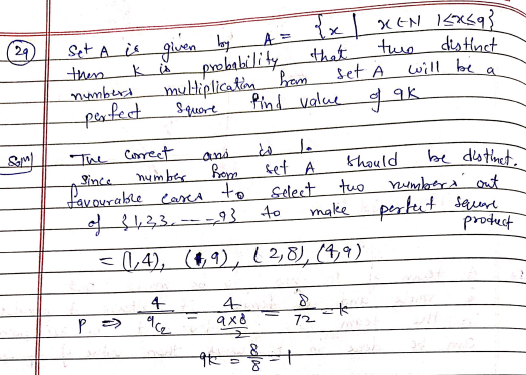 (29) Set A is given by A = {x | x ∈ N 1≤x≤9}
then K is probability that two distinct
numbers multiplication from set A will be a
perfect square find value of 9K
Soln) The correct ans is 1.
Since number from set A should be distinct.
favourable cases to select two numbers out
of {1,2,3, ----,9} to make perfect square
product
= (1,4), (1,9), (2,8), (4,9)
P ⇒ 4/9C2 = 4/(9×8/2) = 8/72 = k
9k = 8/8 = 1